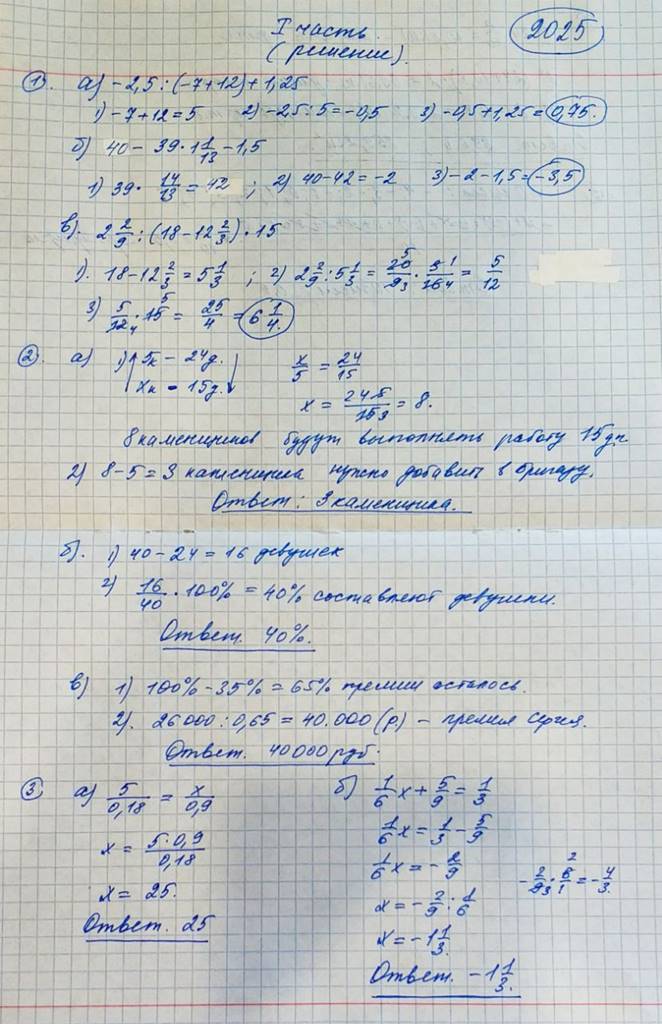 I часть.
(решение).
2025
1). а) -2,5 : (-7+12) + 1,25
1) -7+12=5 2) -2,5:5=-0,5 3) -0,5+1,25=0,75.
б) 40 - 39 · 1 1/13 - 1,5
1) 39 · 14/13 = 42 ; 2) 40-42=-2 3) -2-1,5=-3,5
в). 2 2/9 : (18-12 2/3) · 15
1). 18-12 2/3 = 5 1/3 ; 2) 2 2/9 : 5 1/3 = 20/9 · 3/16 = 5/12
3) 5/12 · 15 = 25/4 = 6 1/4.
2). а) 1) 5к - 24д. x/5 = 24/15
xк - 15д. x = 24·5/15 = 8.
8 каменщиков будут выполнять работу 15 дн
2) 8-5=3 каменщика нужно добавить в бригаду.
Ответ: 3 каменщика.
б). 1) 40-24=16 девушек
2) 16/40 · 100% = 40% составляют девушки.
Ответ. 40%.
в) 1) 100%-35%=65% премии осталось.
2). 26000:0,65=40.000 (р) - премия Сергея.
Ответ. 40000 руб.
3) а) 5/0,18 = x/0,9
x = 5·0,9/0,18
x = 25.
Ответ. 25
б) 1/6 x + 5/9 = 1/3
1/6 x = 1/3 - 5/9
1/6 x = - 2/9
x = - 2/9 : 1/6
- 2/9 · 6/1 = - 4/3.
x = -1 1/3.
Ответ. -1 1/3.